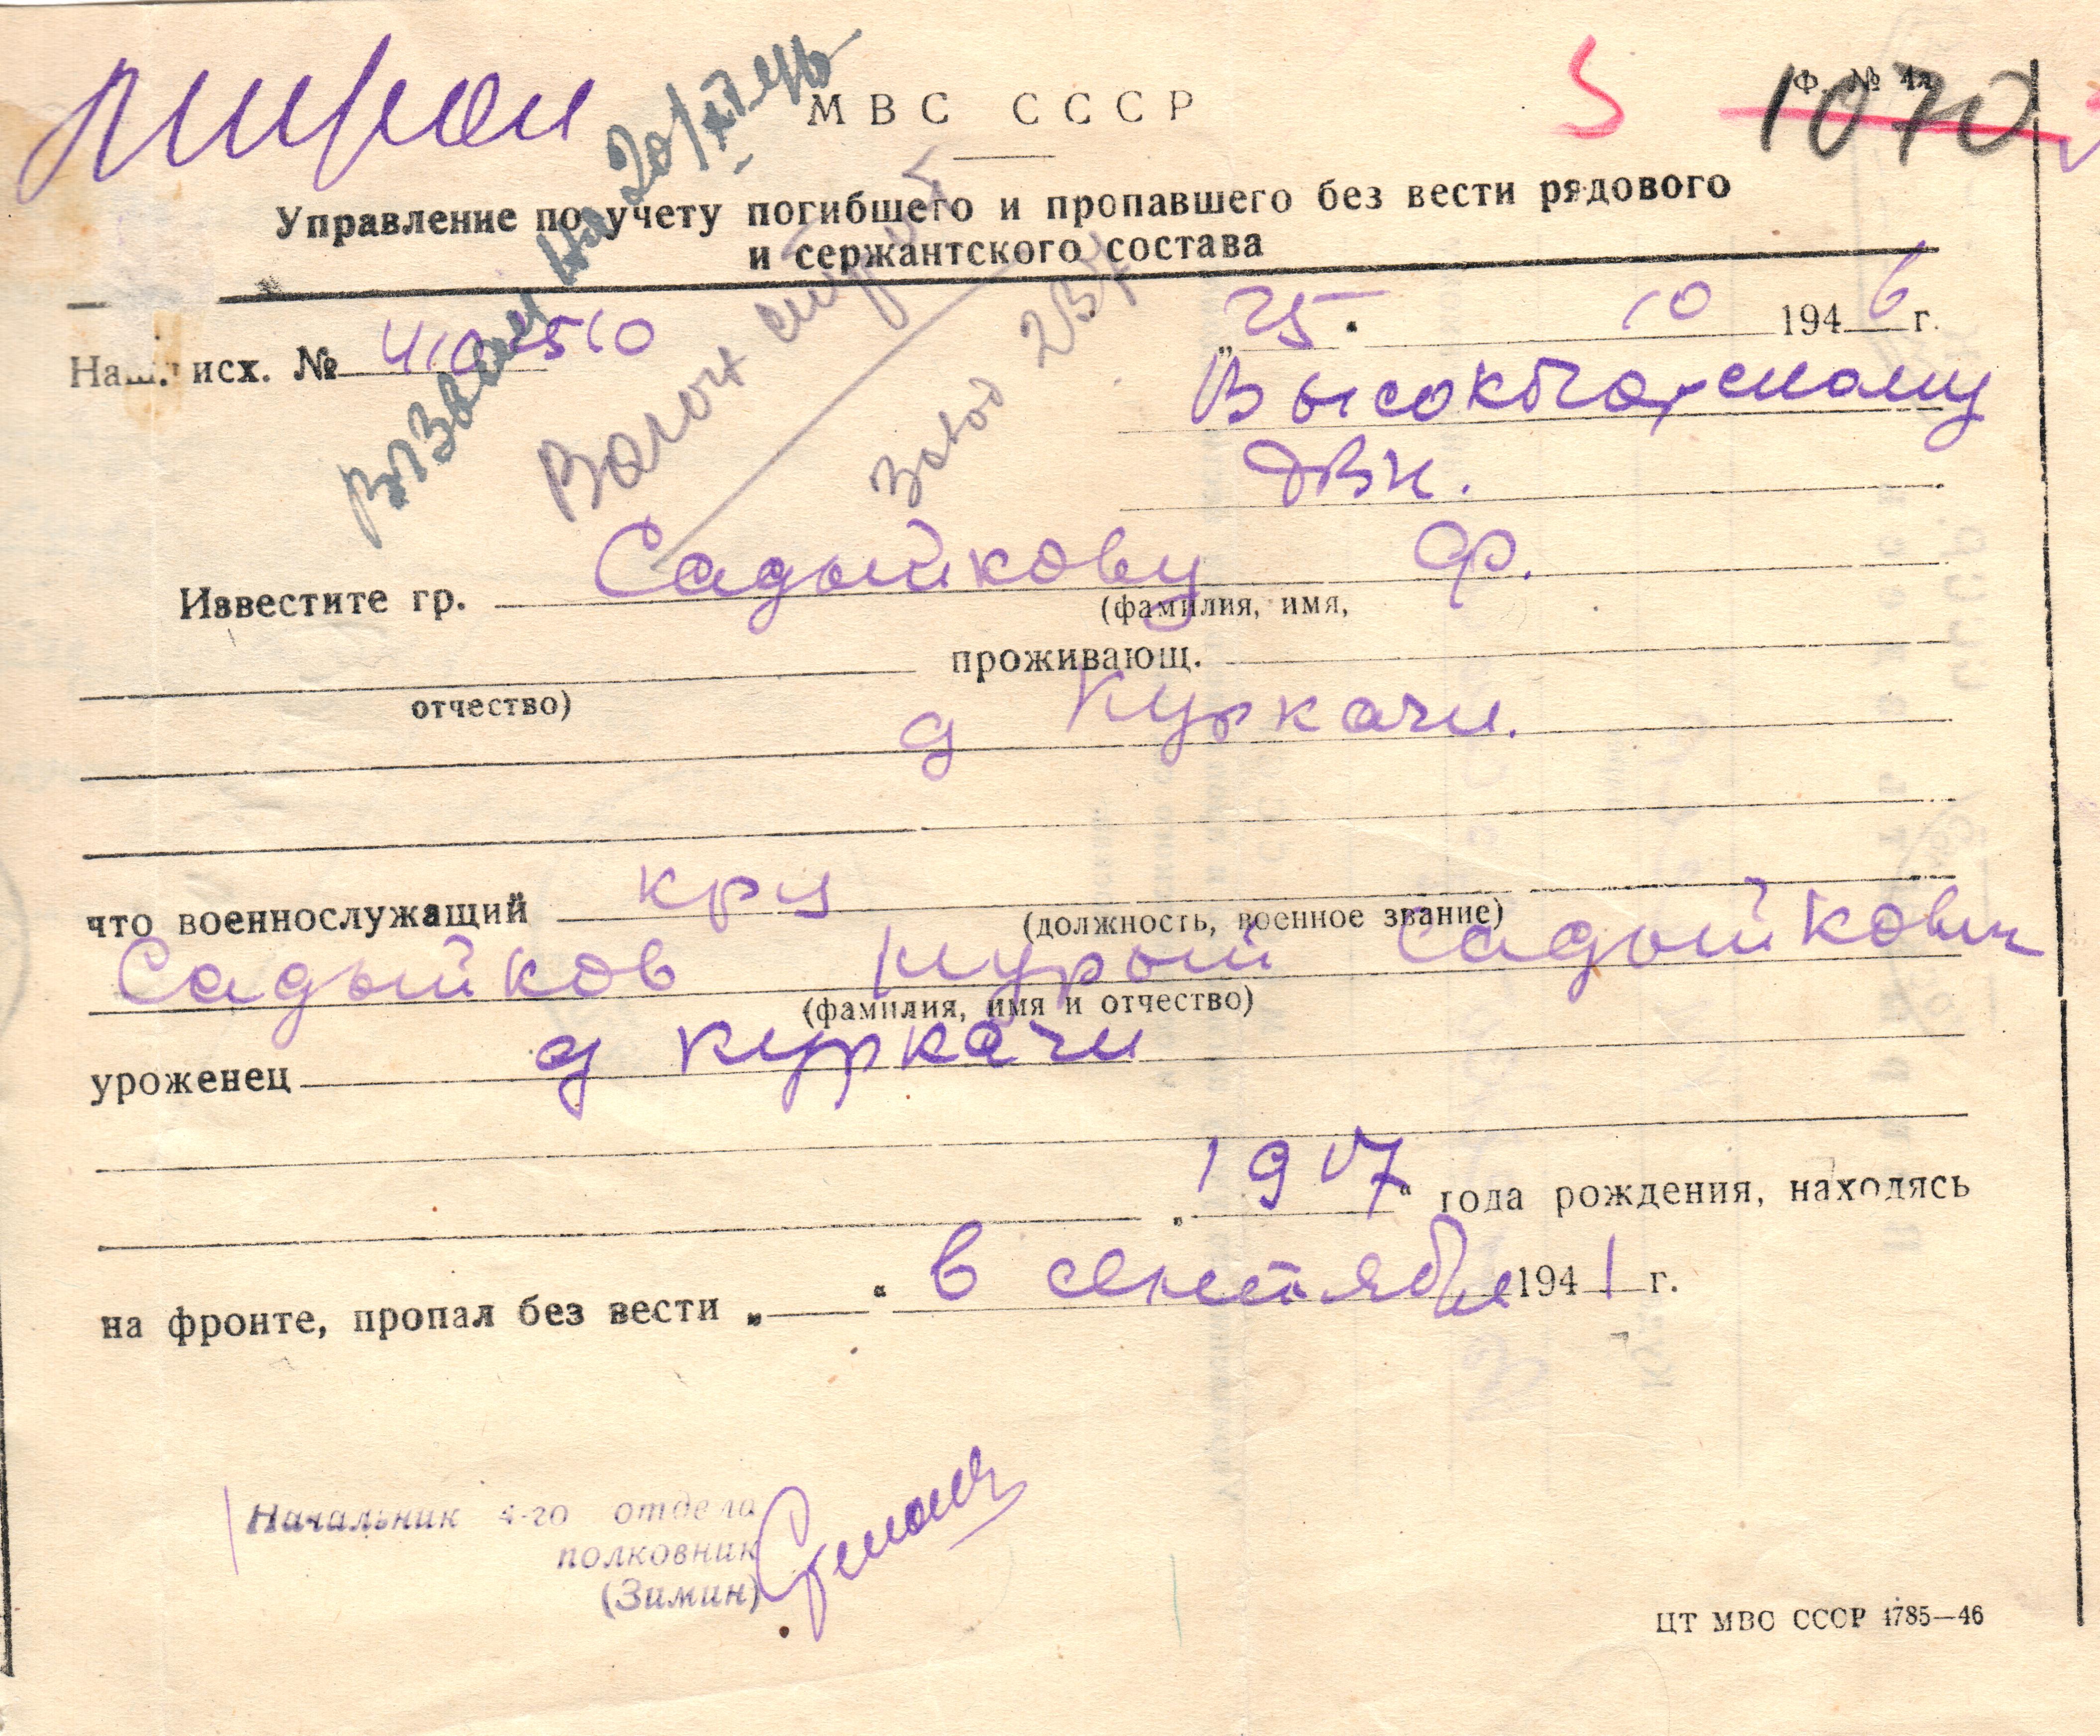 Ф. № 4а
1070
МВС СССР
Управление по учету погибшего и пропавшего без вести рядового
и сержантского состава
Наш исх. № 25. 10 1946 г.
ДВК.
Известите гр. Садыйкову Ф.
(фамилия, имя,
проживающ.
отчество)
д Куркачи.
что военнослужащий кр-ц
(должность, военное звание)
Садыйков Садыйкович
(фамилия, имя и отчество)
уроженец д Куркачи
„1907“ года рождения, находясь
на фронте, пропал без вести „ “ в сентябре 1941 г.
Начальник 4-го отдела
полковник
(Зимин)
ЦТ МВС СССР 1785—46